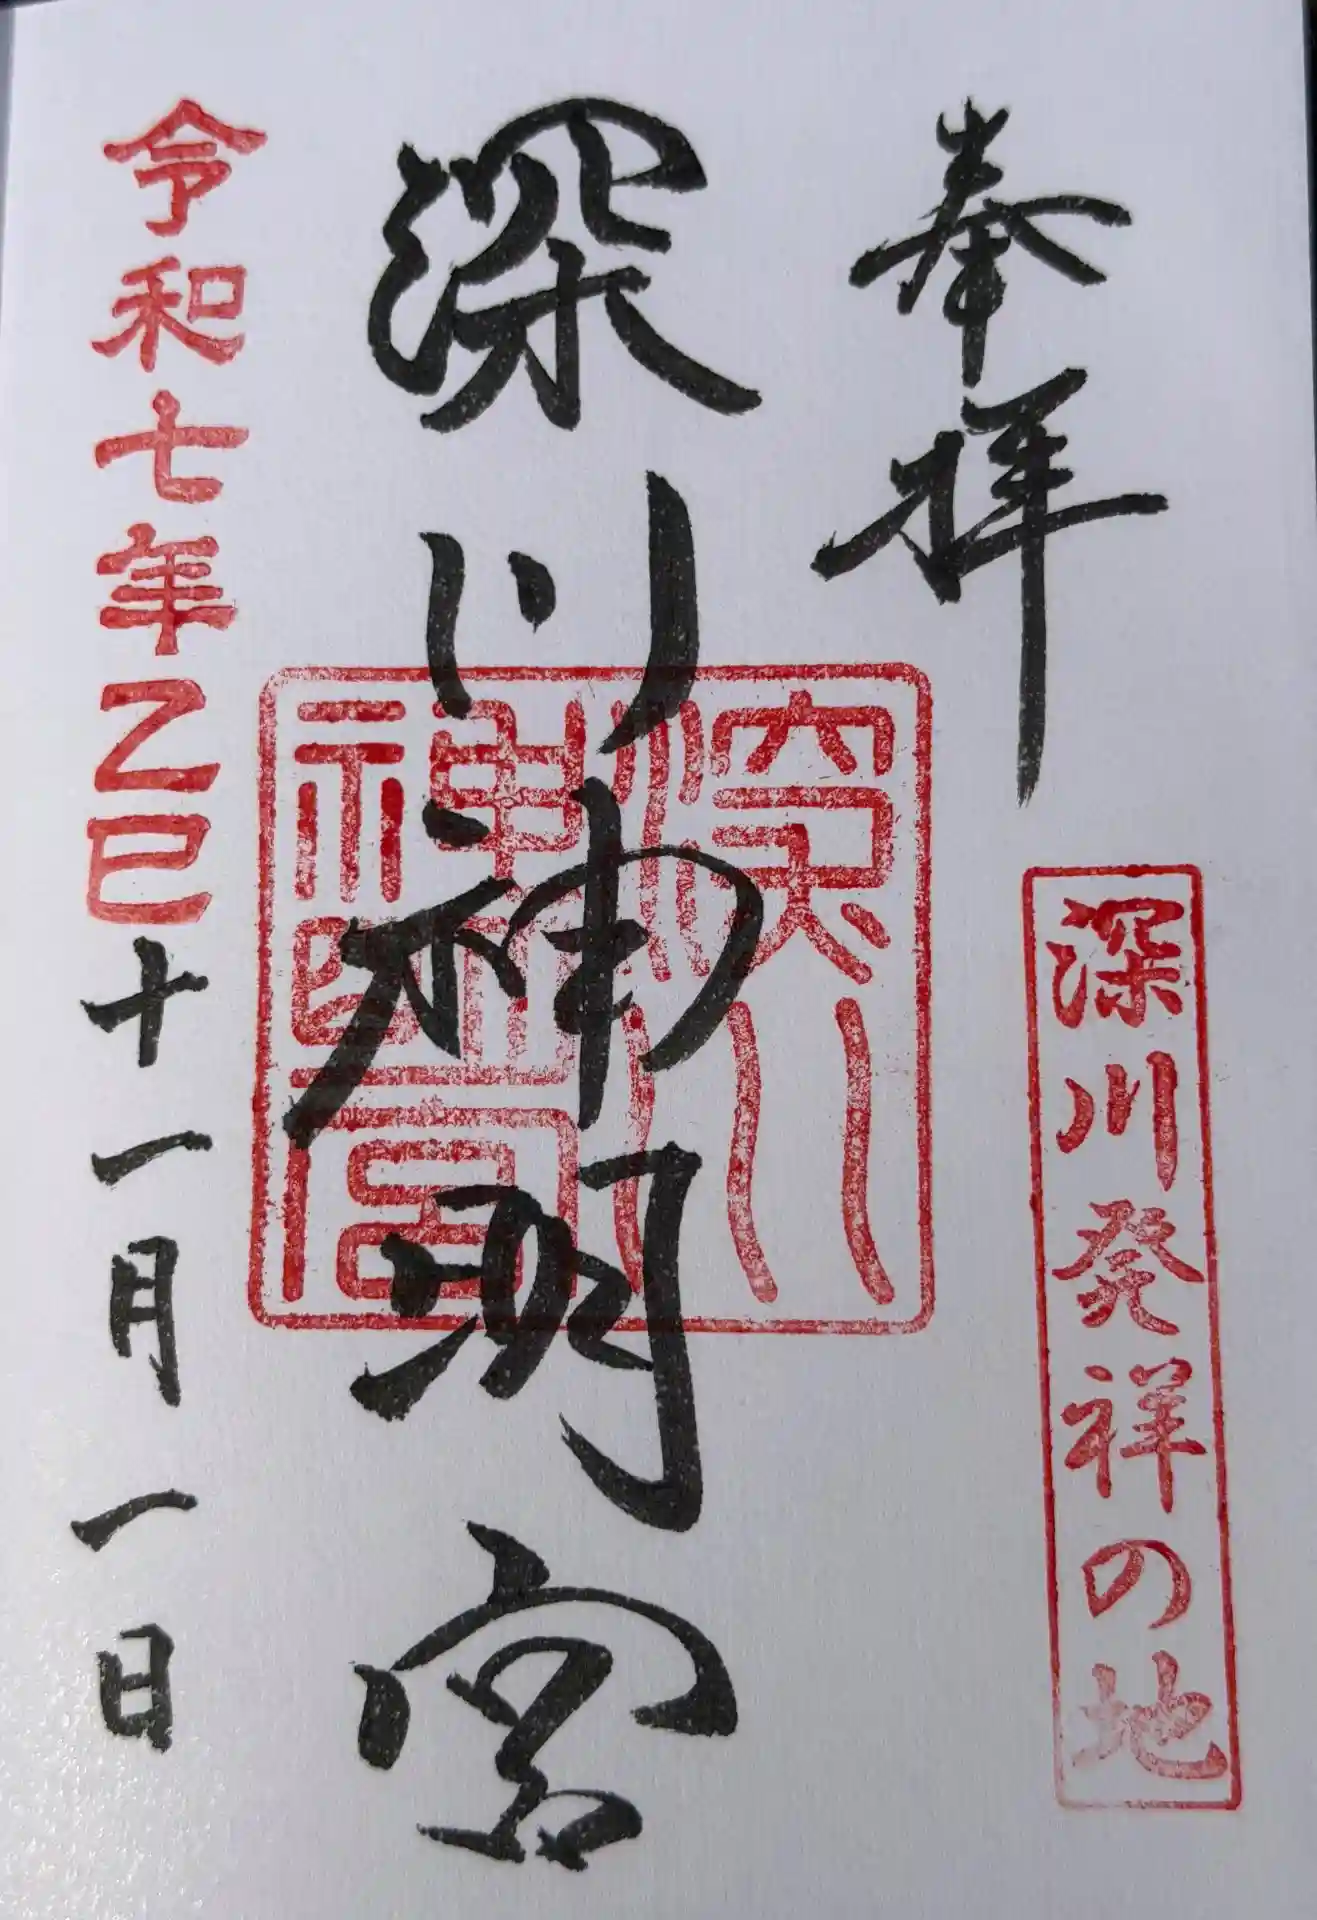 奉拝
深川発祥の地
深川神明宮
深川神明宮
令和七年乙巳十一月一日